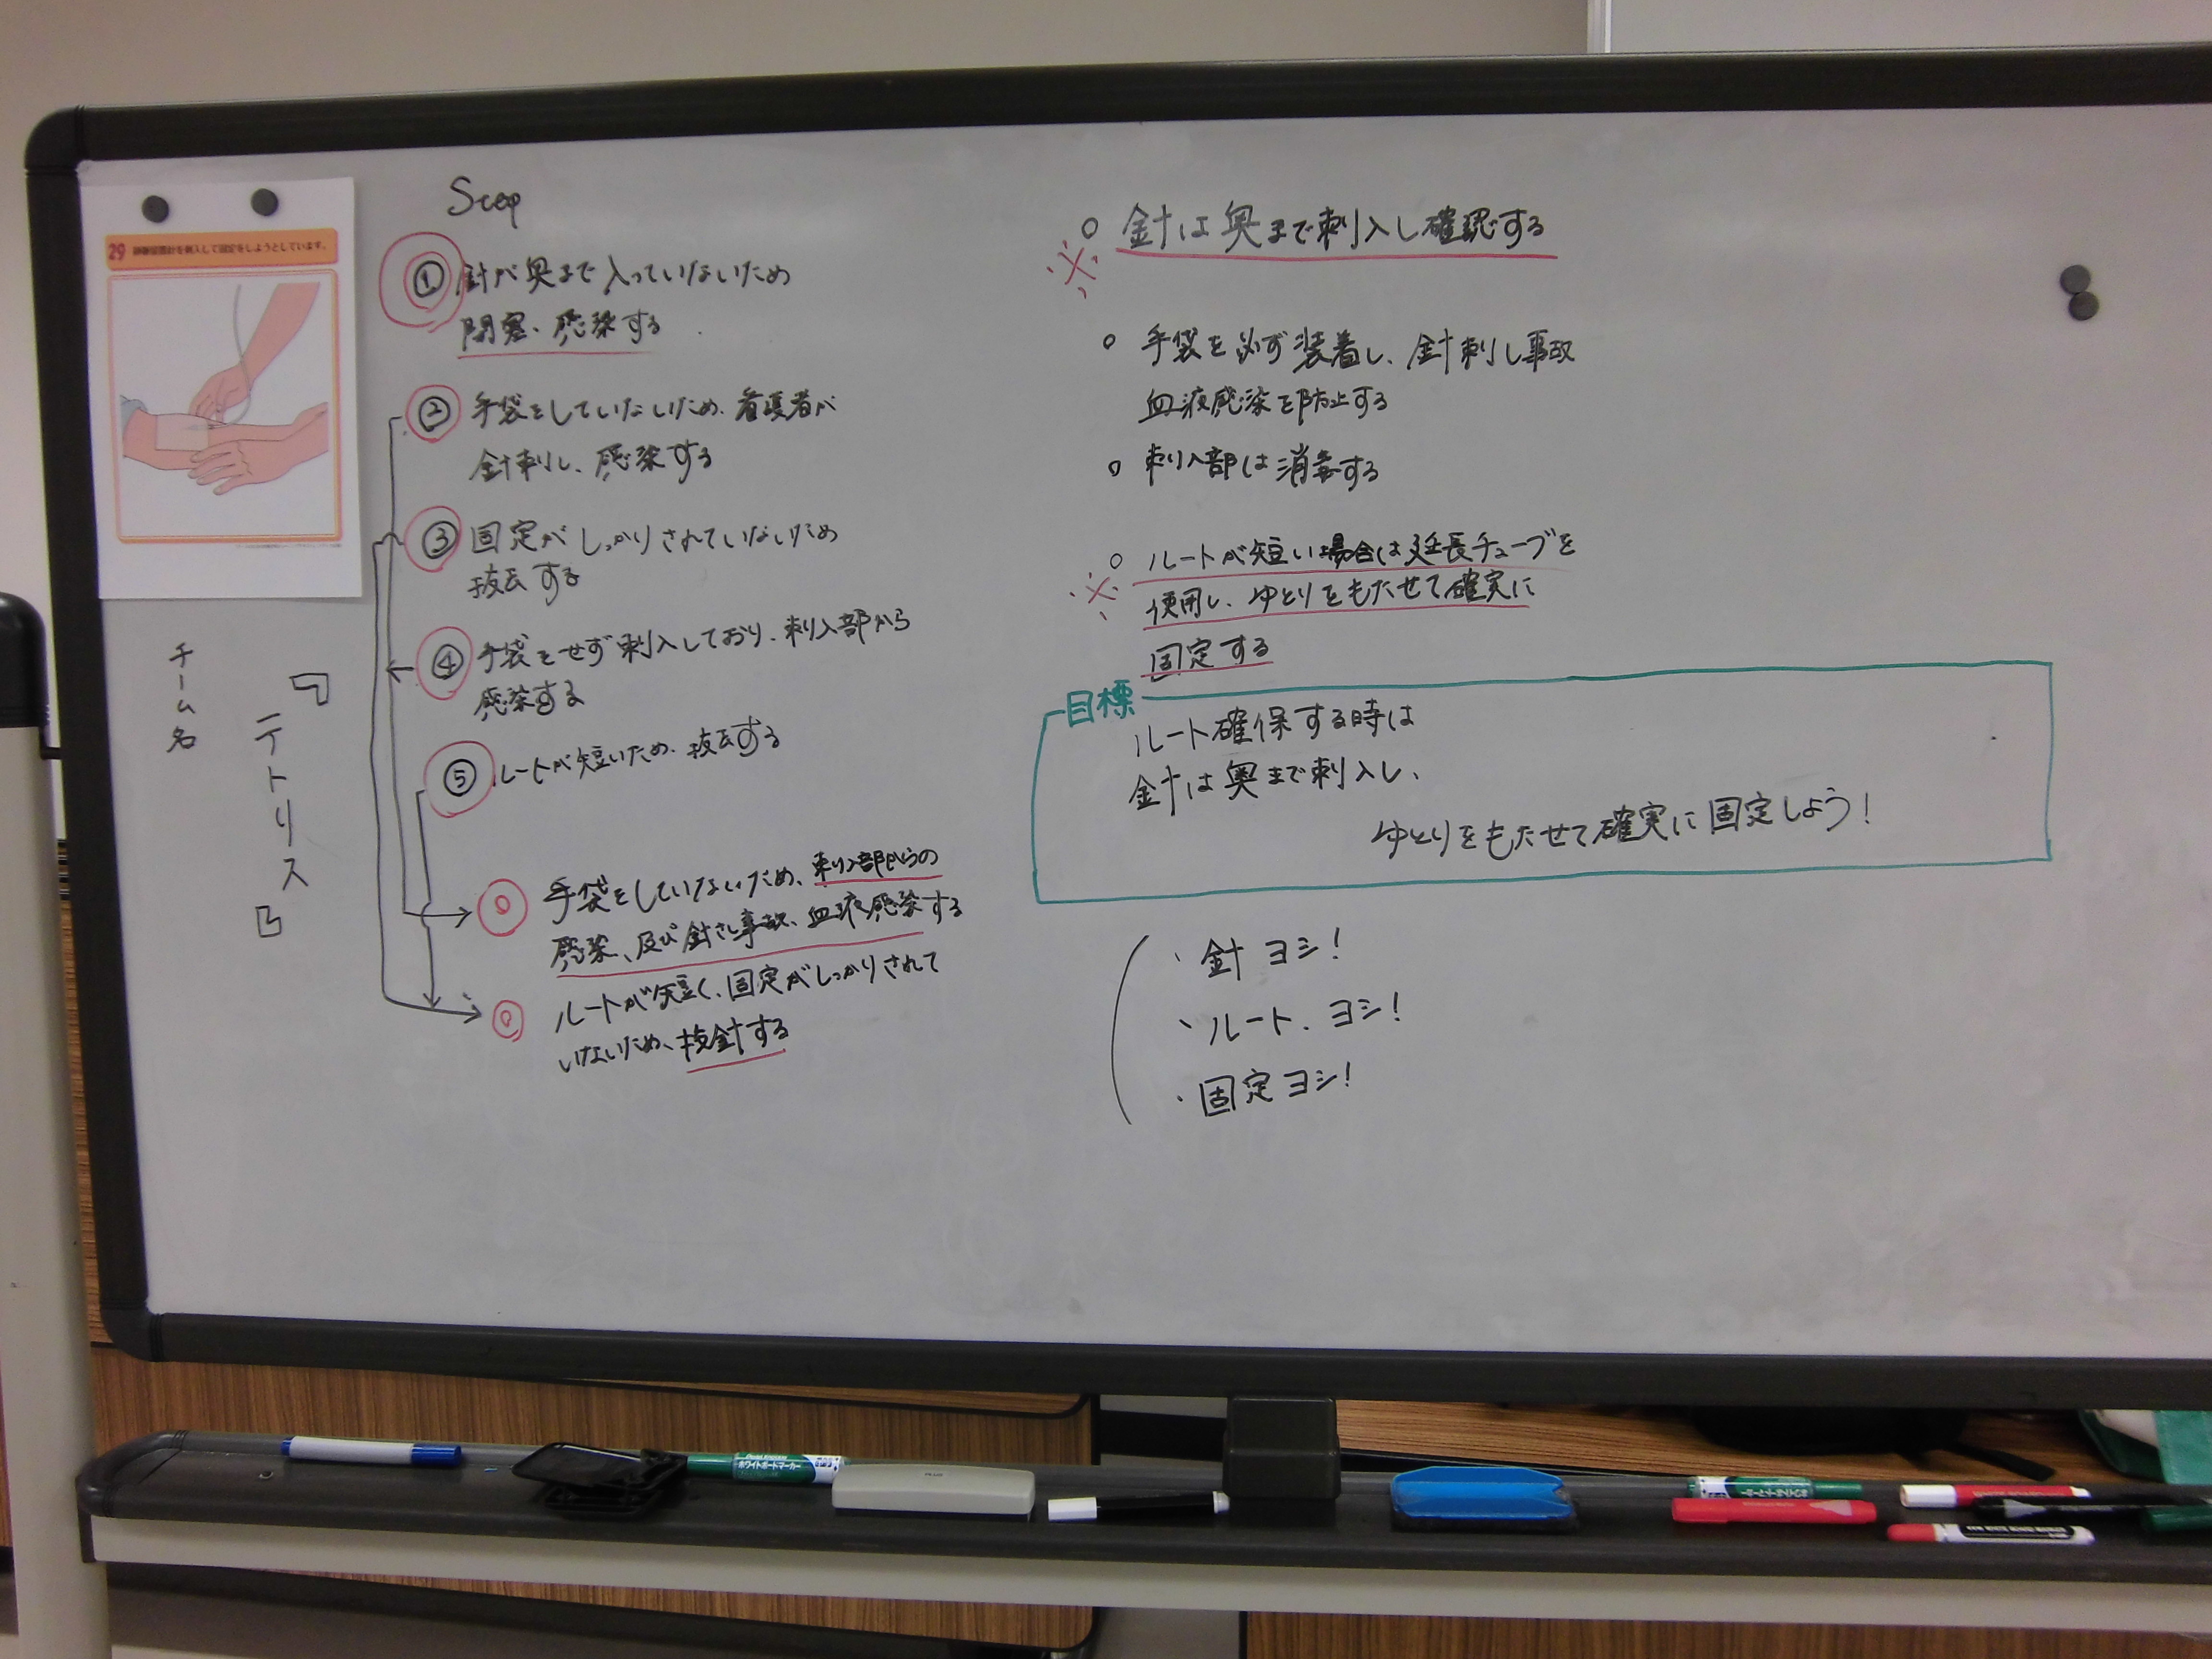 29 静脈留置針を刺入して固定をしようとしています。
チーム名
『テトリス』
Step
① 針が奥まで入っていないため
閉塞、感染する
② 手袋をしていないため、看護者が
針刺し、感染する
③ 固定がしっかりされていないため
抜去する
④ 手袋をせず刺入しており、刺入部から
感染する
⑤ ルートが短いため、抜去する
手袋をしていないため、刺入部からの
感染、及び針さし事故、血液感染する
ルートが短く、固定がしっかりされて
いないため、抜針する
○ 針は奥まで刺入し確認する
※
○ 手袋を必ず装着し、針刺し事故
血液感染を防止する
○ 刺入部は消毒する
○ ルートが短い場合は延長チューブを
※ 使用し、ゆとりをもたせて確実に
固定する
目標
ルート確保する時は
針は奥まで刺入し、
ゆとりをもたせて確実に固定しよう!
・針 ヨシ!
・ルート、ヨシ!
・固定ヨシ!
ホワイトボードマーカー